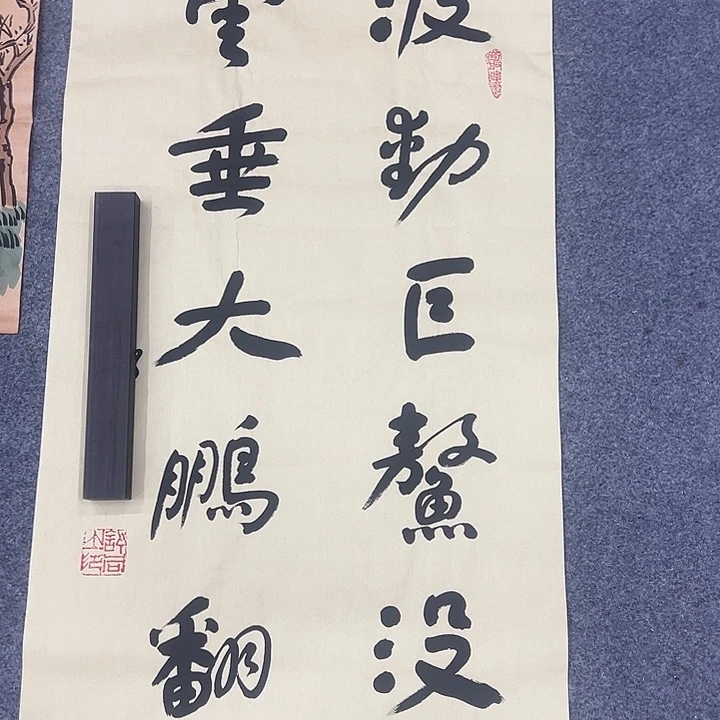 波動巨鰲没
雲垂大鵬翻